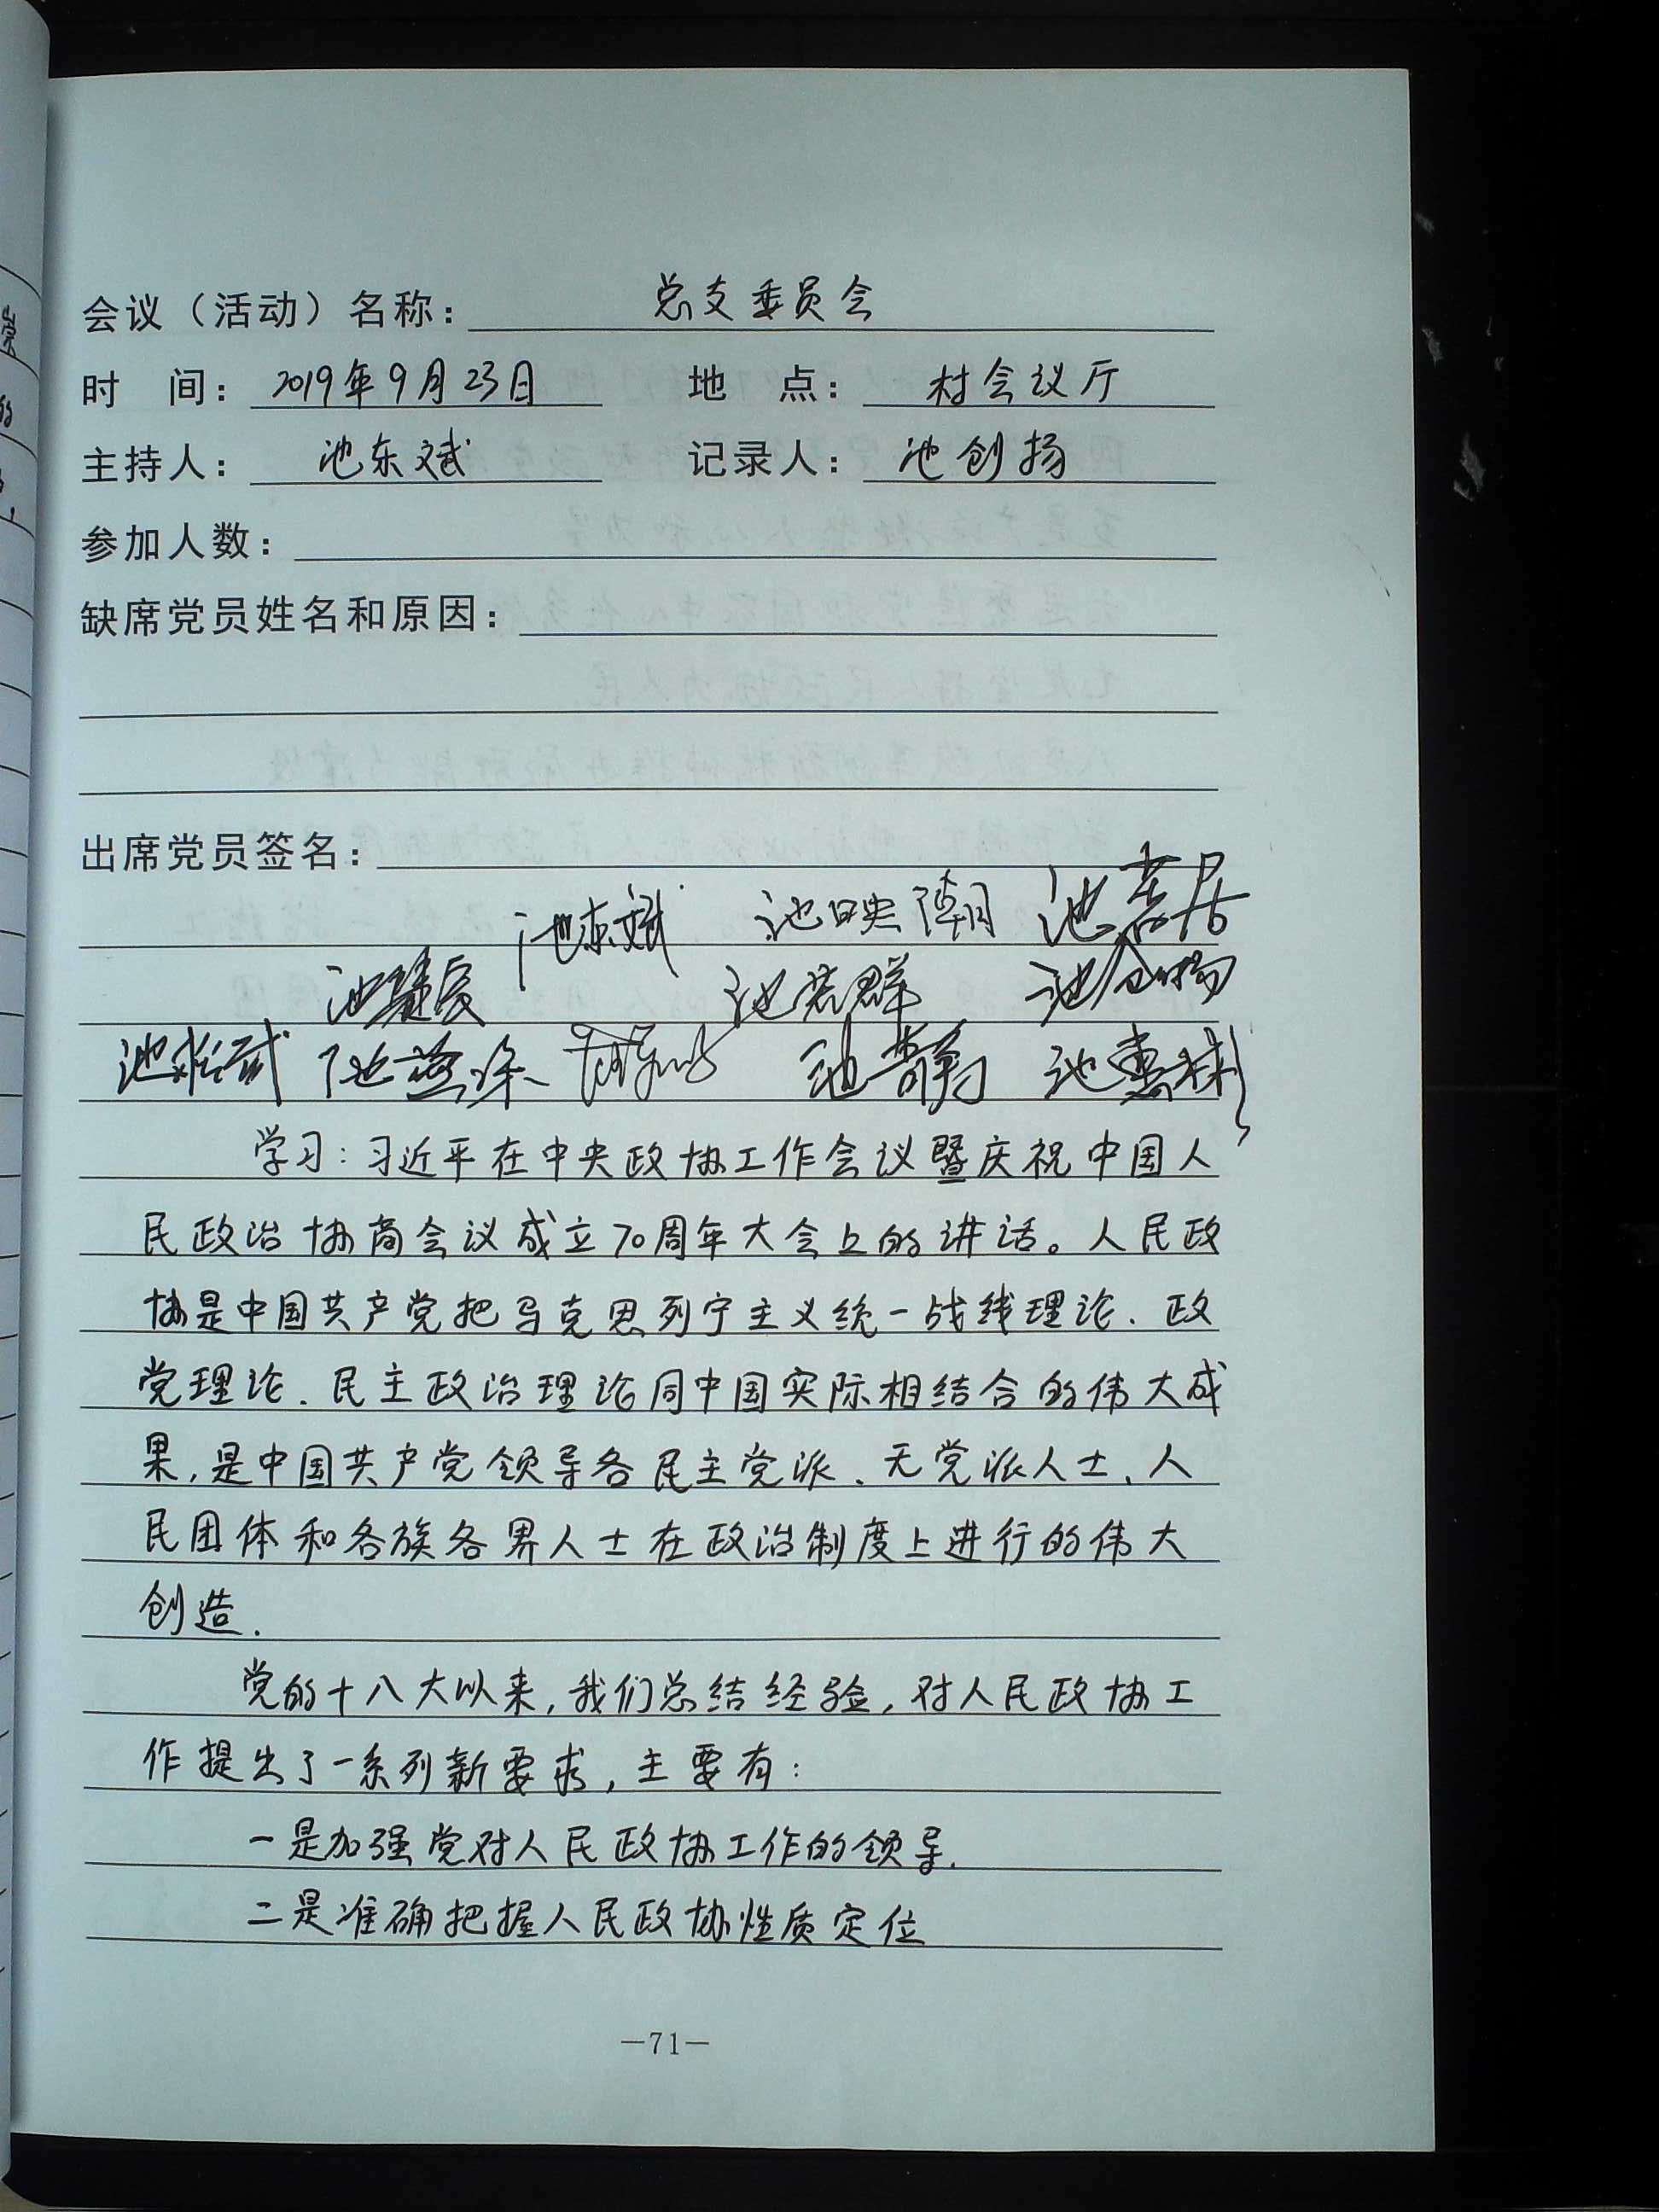 会议（活动）名称：总支委员会
时 间：2019年9月23日 地 点：村会议厅
主持人：池东斌 记录人：池创扬
参加人数：
缺席党员姓名和原因：
出席党员签名：
池东斌 池映潮 池
池 池群 池
池 池 池 池
学习：习近平在中央政协工作会议暨庆祝中国人
民政治协商会议成立70周年大会上的讲话。人民政
协是中国共产党把马克思列宁主义统一战线理论、政
党理论、民主政治理论同中国实际相结合的伟大成
果，是中国共产党领导各民主党派、无党派人士、人
民团体和各族各界人士在政治制度上进行的伟大
创造.
党的十八大以来，我们总结经验，对人民政协工
作提出了一系列新要求，主要有：
一是加强党对人民政协工作的领导.
二是准确把握人民政协性质定位
—71—